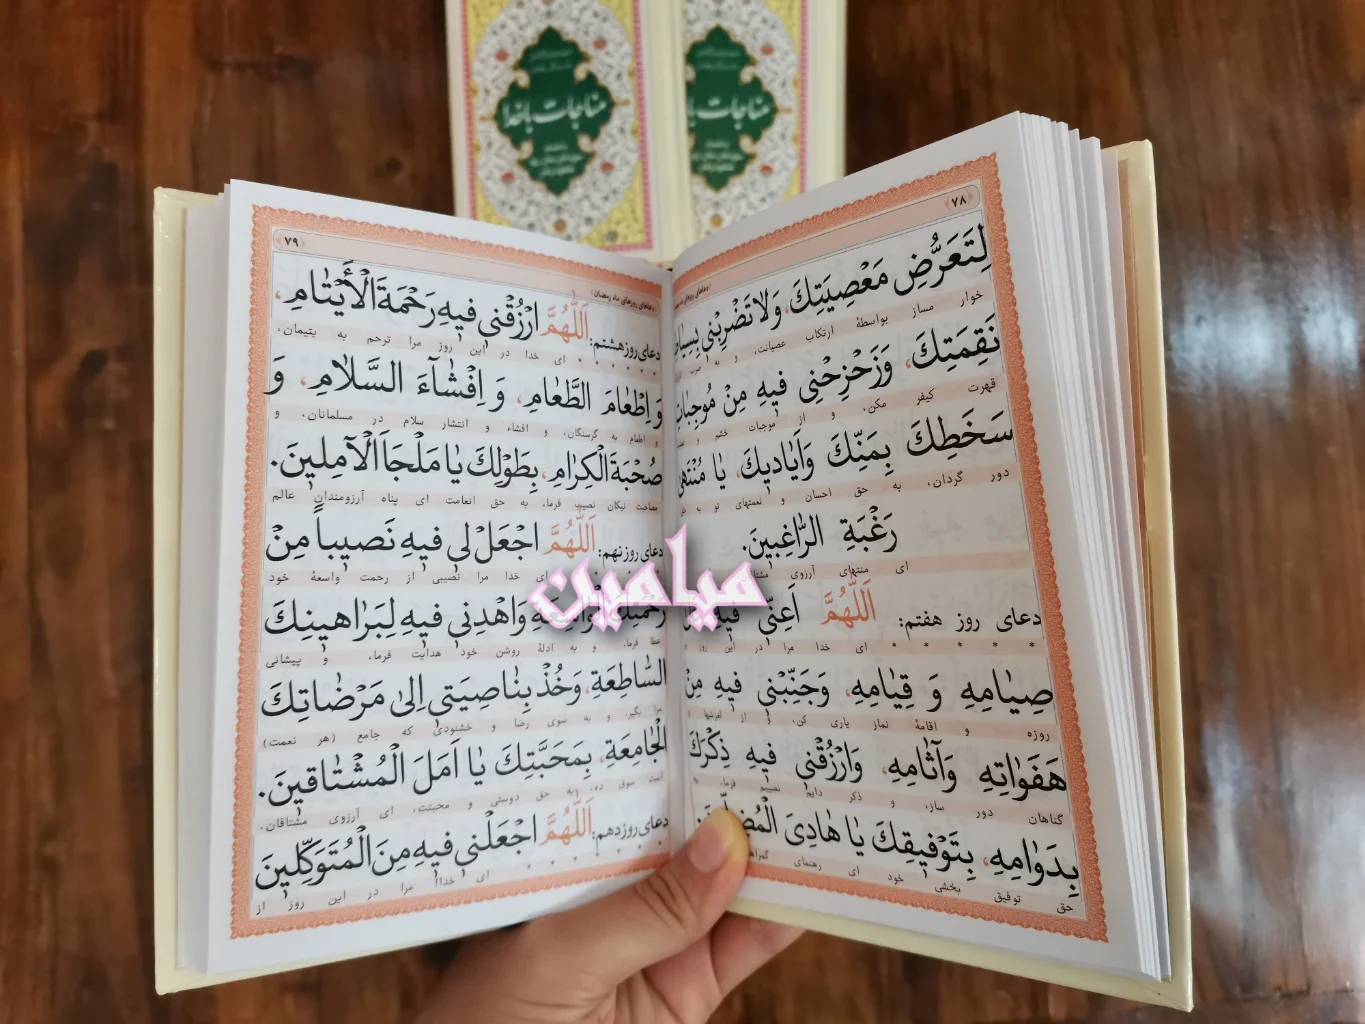 مناجات باخدا
مناجات با
۷۸
دعاهای روزهای ماه
لِتَعَرُّضِ مَعْصِيَتِكَ، وَلَا تَضْرِبْنِي بِسِيَاطِ
خوار مساز بواسطهٔ ارتکاب عصیانت، و به ضرب
نَقِمَتِكَ، وَزَحْزِحْنِي فِيهِ مِنْ مُوجِبَاتِ
قهرت کیفر مکن، و از موجبات خشم و
سَخَطِكَ بِمَنِّكَ وَاَيَادِيكَ، يَا مُنْتَهَى
دور گردان، به حق احسان و نعمتهای تو به
رَغْبَةِ الرَّاغِبِينَ.
ای منتهای آرزوی
دعای روز هفتم: اَللّٰهُمَّ اَعِنِّي فِيهِ
* * * * * ای خدا مرا در این روز
صِيَامِهِ وَ قِيَامِهِ، وَجَنِّبْنِي فِيهِ مِنْ
روزه و اقامهٔ نماز یاری کن، و از لغزشها و
هَفَوَاتِهِ وَآثَامِهِ، وَارْزُقْنِي فِيهِ ذِكْرَكَ
گناهان دور ساز، و ذکر دایم نصیبم فرما، به
بِدَوَامِهِ، بِتَوْفِيقِكَ يَا هَادِيَ
حق توفیق بخشی خود ای رهنمای
۷۹
دعاهای روزهای ماه رمضان
دعای روز هشتم: اَللّٰهُمَّ ارْزُقْنِي فِيهِ رَحْمَةَ الْأَيْتَامِ،
* * * * * ای خدا در این روز مرا ترحم به یتیمان،
وَ اِطْعَامَ الطَّعَامِ، وَ اِفْشَاءَ السَّلَامِ، وَ
و اطعام به گرسنگان، و افشاء و انتشار سلام در مسلمانان، و
صُحْبَةَ الْكِرَامِ، بِطَوْلِكَ يَا مَلْجَاَ الْآمِلِينَ.
مصاحبت نیکان نصیب فرما، به حق انعامت ای پناه آرزومندان عالم
دعای روز نهم: اَللّٰهُمَّ اجْعَلْ لِي فِيهِ نَصِيباً مِنْ
ای خدا مرا نصیبی از رحمت واسعهٔ خود
رَحْمَتِكَ الْوَاسِعَةِ وَاهْدِنِي فِيهِ لِبَرَاهِينِكَ
عطا فرما، و به ادلهٔ روشن خود هدایت فرما، و پیشانی
السَّاطِعَةِ، وَخُذْ بِنَاصِيَتِي اِلَى مَرْضَاتِكَ
مرا بگیر، و به سوی رضا و خشنودی که جامع (هر نعمت)
الْجَامِعَةِ، بِمَحَبَّتِكَ يَا اَمَلَ الْمُشْتَاقِينَ.
است سوق ده، به حق دوستی و محبتت، ای آرزوی مشتاقان.
دعای روز دهم: اَللّٰهُمَّ اجْعَلْنِي فِيهِ مِنَ الْمُتَوَكِّلِينَ
* * * * * ای خدا مرا در این روز از
میامین